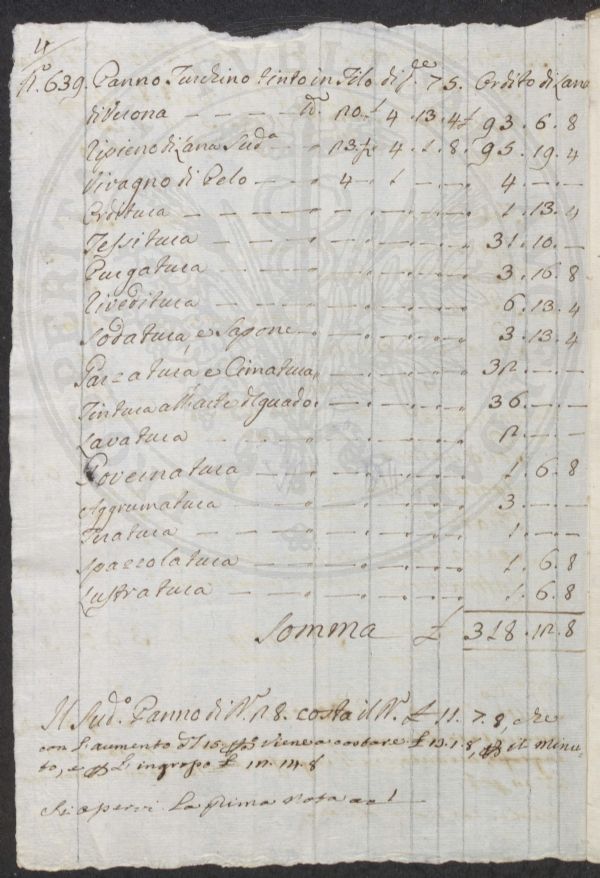 4
N.º 639. Panno Turchino tinto in Filo di p.de 75. Ordito di Lana
di Verona — — — — lb. 20 £ 4. 13. 4 £ 93. 6. 8
Ripieno di Lana Sud.ª — — 23 4. 1. 8. 95. 19. 4
Vivagno di Pelo — — 4 — 1 — 4. — —
Orditura — — — 1. 13. 4
Tessitura — — — 31. 10. —
Purgatura — — — 3. 16. 8
Riveditura — — — 6. 13. 4
Sodatura, e Sapone — 3. 13. 4
Parzatura e Cimatura 32. — —
Tintura all'arte d'guado. 36. — —
Lavatura — — — 2. — —
Governatura — — — 1. 6. 8
Aggrumatura — — — 3. — —
Tiratura — — — 1. — —
Spazzolatura — — — 1. 6. 8
Lustratura — — — 1. 6. 8
Somma — £ 318. 12. 8
Il Sud.º Panno di B.r 28. costa il B.r £ 11. 7. 8, che
con l'aumento d'l 15. p% viene a costare £ 13. 1. 8, p il minu-
to, e p l'ingrosso £
La prima nota